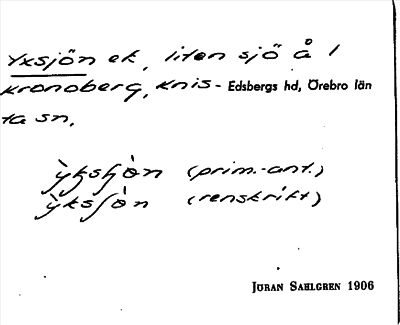 Yxsjön ek, liten sjö å 1
Kronoberg, Knis- Edsbergs hd, Örebro län
ta sn.
(prim.-ant.)
(renskrikt)
JÖRAN SAHLGREN 1906